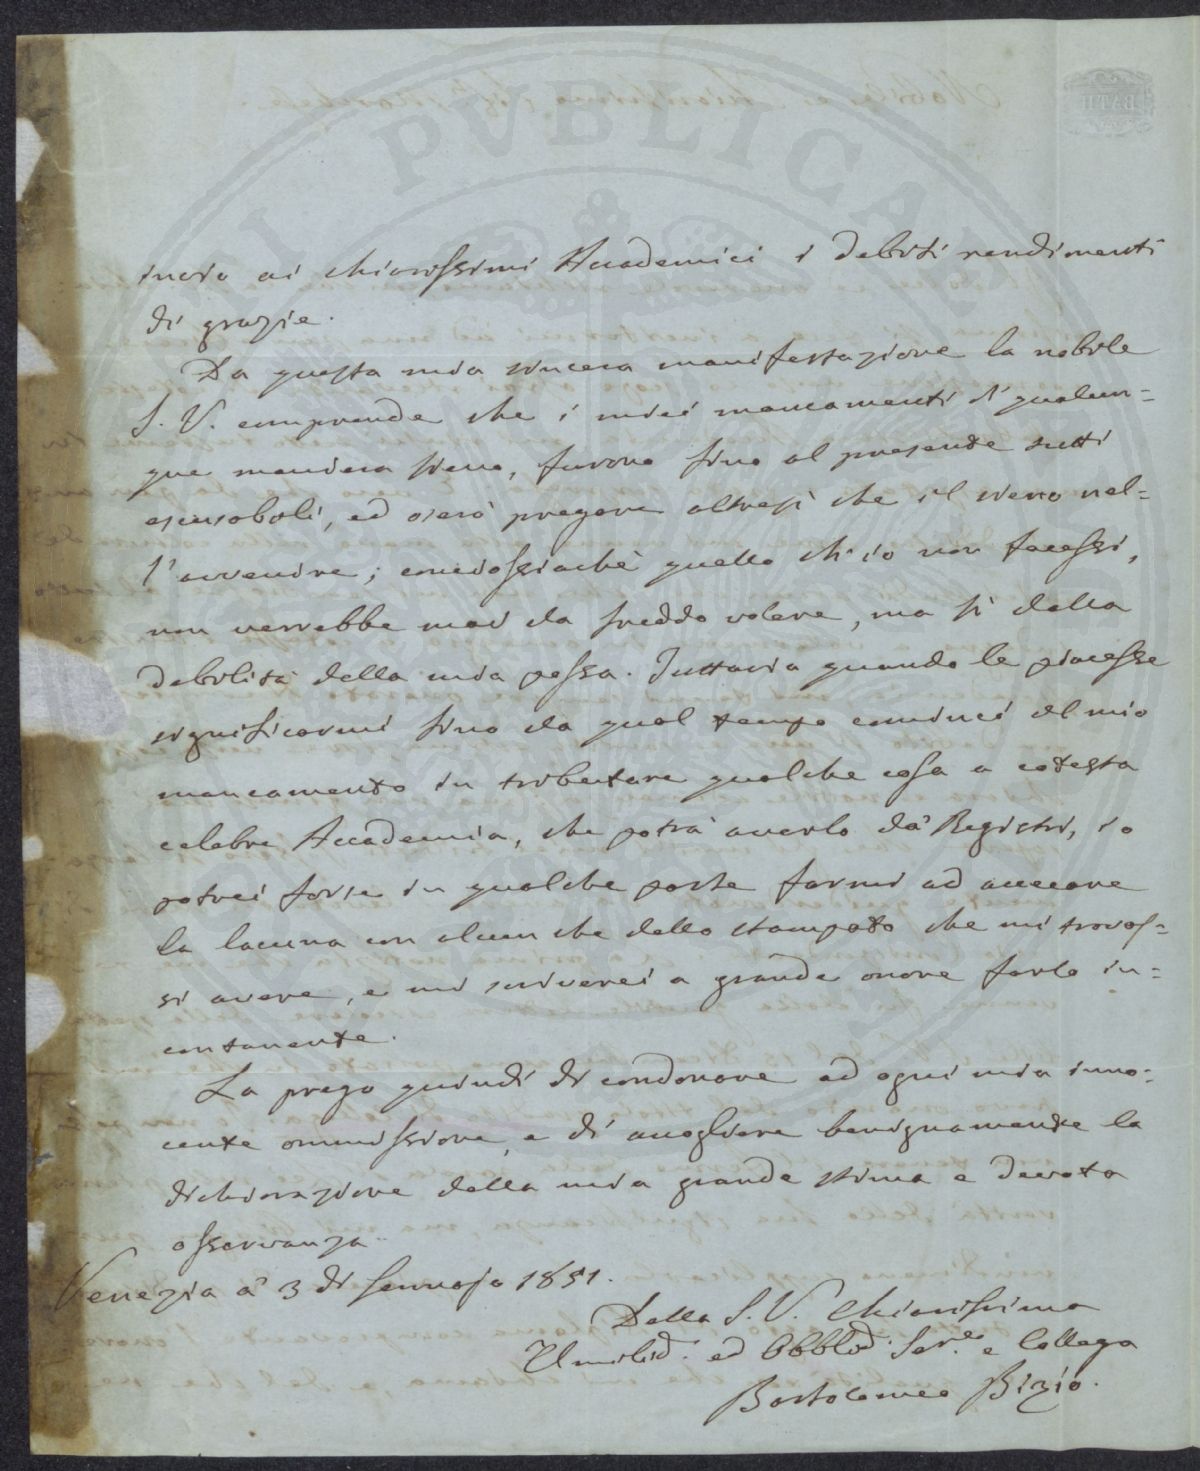 invio ai chiarissimi Accademici i debiti rendimenti
di grazie.
Da questa mia sincera manifestazione la nobile
S. V. comprende che i miei mancamenti di qualun=
que maniera sieno, furono fino al presente tutti
escusabili, ed oserò pregare altresì che il sieno nel=
l'avvenire; conciossiachè quello ch'io non facessi,
non verrebbe mai da freddo volere, ma sì dalla
debolità della mia possa. Tuttavia quando le piacesse
significarmi fino da qual tempo cominci il mio
mancamento in tributare qualche cosa a codesta
celebre Accademia, che potrà averlo da' Registri, io
potrei forse in qualche parte farmi ad
la lacuna con alcun che dello stampato che mi trovas=
si avere, e mi scriverei a grande onore farlo in=
contanente.
La prego quindi di condonare ad ogni mia inno=
cente ommissione, e di accogliere benignamente la
dichiarazione della mia grande stima e devota
osservanza.
Venezia a' 3 di Gennajo 1851.
Della S. V. Chiarissima
Umiliss. ed Obblig. Ser.e e Collega
Bartolomeo Bizio.
BATH
PVBLICAE